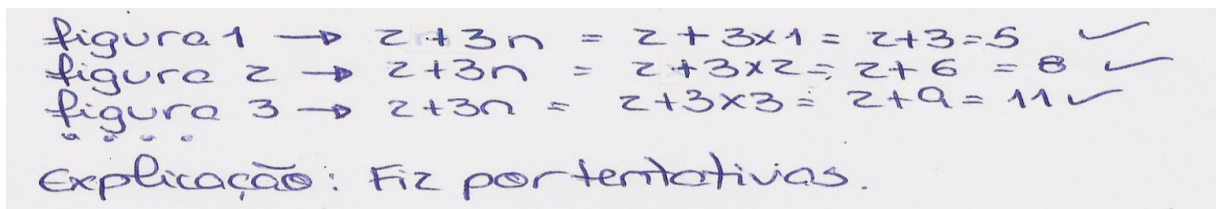 figura 1 → 2+3n = 2+3x1 = 2+3=5 ✓
figura 2 → 2+3n = 2+3x2= 2+6 = 8 ✓
figura 3 → 2+3n = 2+3x3= 2+9= 11 ✓
....
Explicação: Fiz por tentativas.